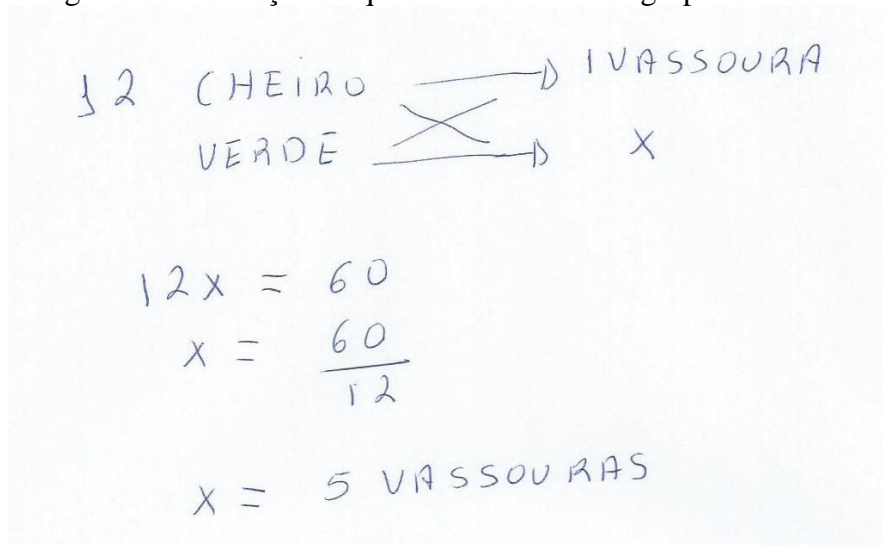 12 CHEIRO → 1 VASSOURA
VERDE → X
12x = 60
x = 60
12
x = 5 VASSOURAS